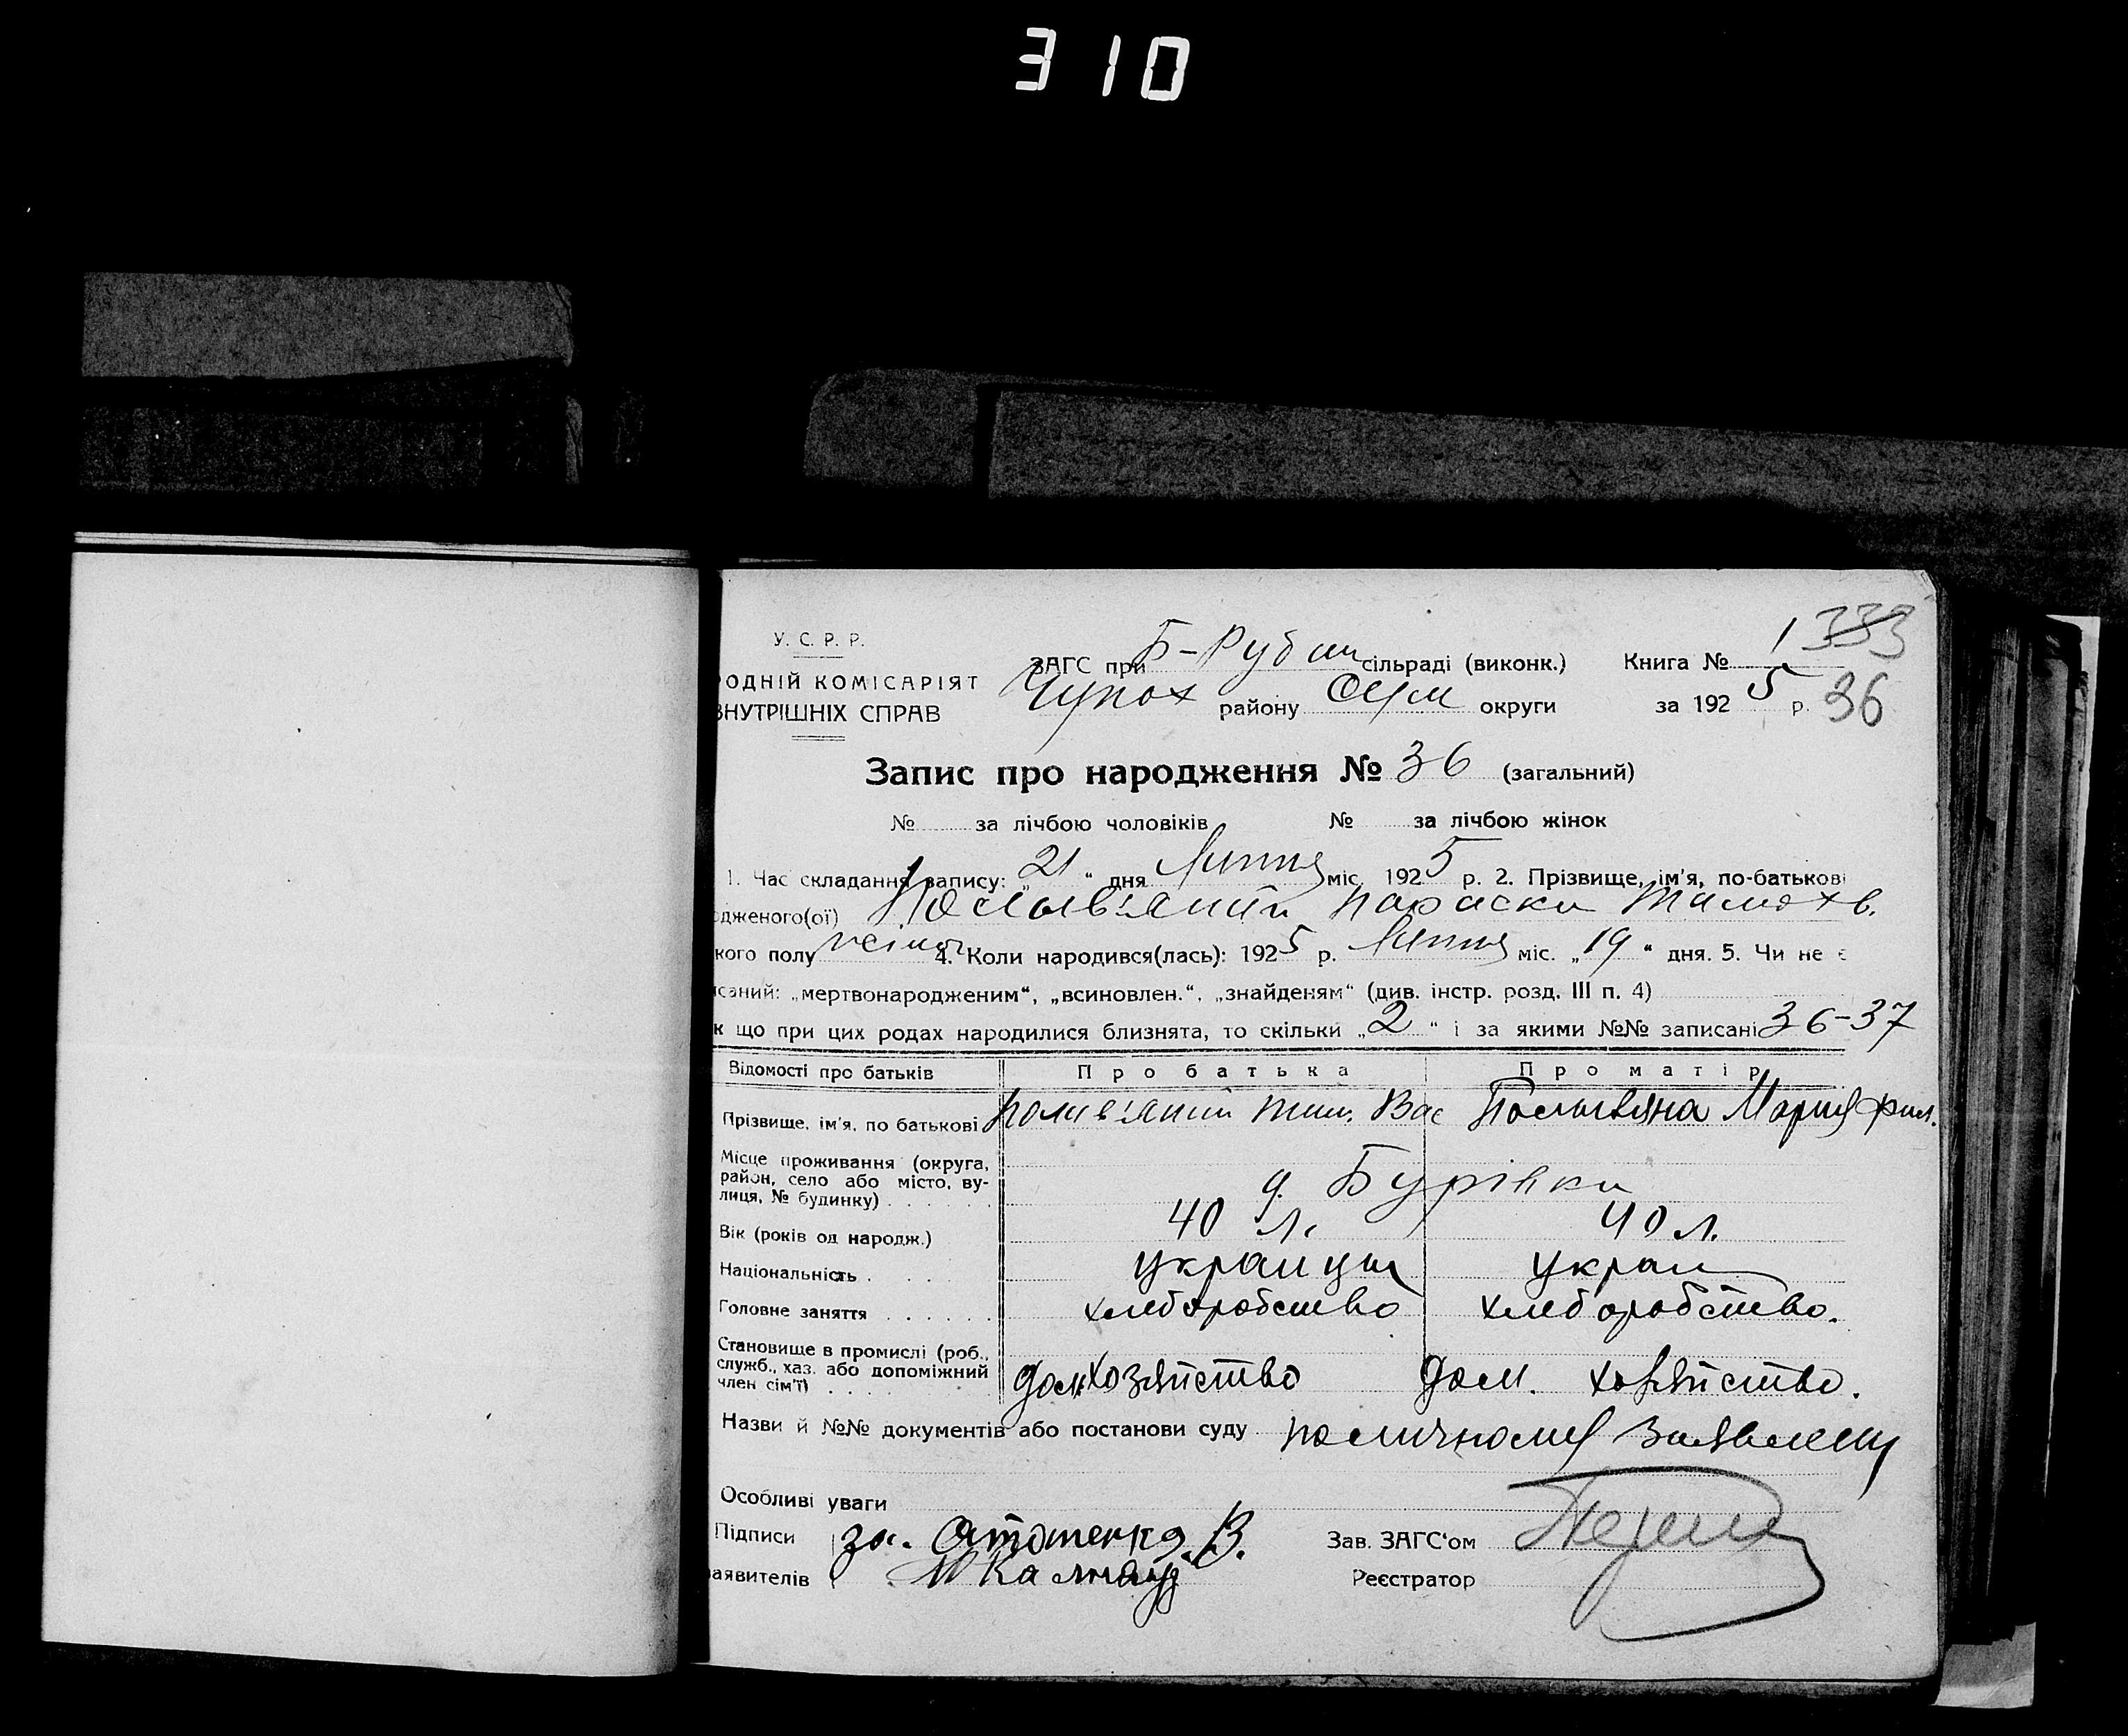 310
У. С. Р. Р.
ОДНІЙ КОМІСАРІЯТ
ВНУТРІШНІХ СПРАВ
ЗАГС при Б-Рубан сільраді (виконк.)
Чупах району Сум округи
Книга № 1 333
за 1925 р. 36
Запис про народження № 36 (загальний)
№ за лічбою чоловіків № за лічбою жінок
1. Час складання запису: „21“ дня Липня міс. 1925 р. 2. Прізвище, ім'я, по-батькові
дженого(ої) Параски
кого полу 4. Коли народився(лась): 1925 р. Липня міс. „19“ дня. 5. Чи не є
исаний: „мертвонародженим“, „всиновлен.“, „знайденям“ (див. інстр. розд. III п. 4)
к що при цих родах народилися близнята, то скільки „2“ і за якими №№ записані 36-37
Відомості про батьків Про батька Про матір
Прізвище, ім'я, по батькові Полив'яний Тим. Вас Поливяна Мария Фил.
Місце проживання (округа, район, село або місто, вулиця, № будинку) Бурівка
Вік (років од народж.) 40 л. 40 л.
Національність украинци украин
Головне заняття хлеборобство хлеборобство.
Становище в промислі (роб., служб., хаз. або допоміжний член сім'ї) дом хозяйство дом. хозяйство.
Назви й №№ документів або постанови суду по личному заявлену
Особливі уваги
Підписи В. Зав. ЗАГС'ом
аявителів Реєстратор